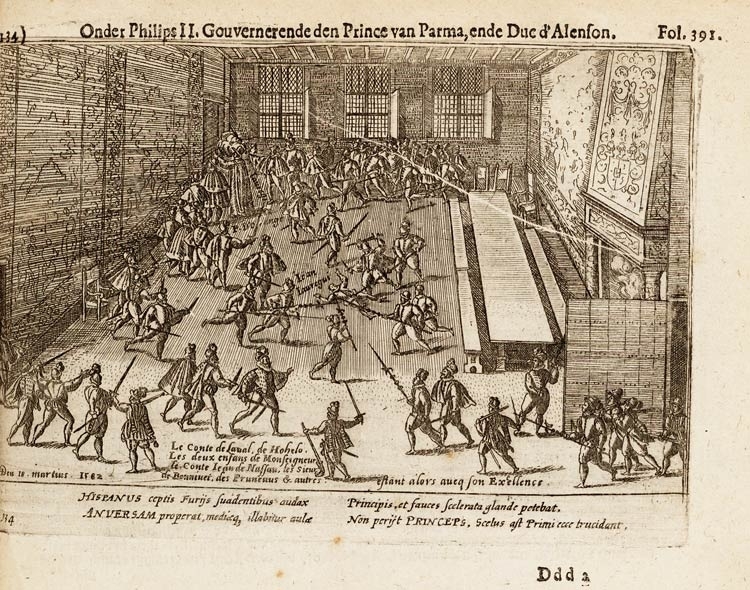 134) Onder Philips II. Gouvernerende den Prince van Parma, ende Duc d'Alenson. Fol. 391.
Iean
Iauregui
Le Conte de Laual, de Hohelo.
Les deux enfans de Monseigneur
le Conte Iean de Naſſau, les Sieurs
de Bonnivet, des Pruneaus & autres
eſtant alors avecq son Exellence
Den 18. martius. 1582
HISPANUS ceptis Furijs ſuadentibus audax
ANVERSAM properat, mediæq, illabitur aulæ
Principis, et fauces ſcelerata glande petebat.
Non perijt PRINCEPS. Scelus aſt Primi ecce trucidant.
134
Ddd 2